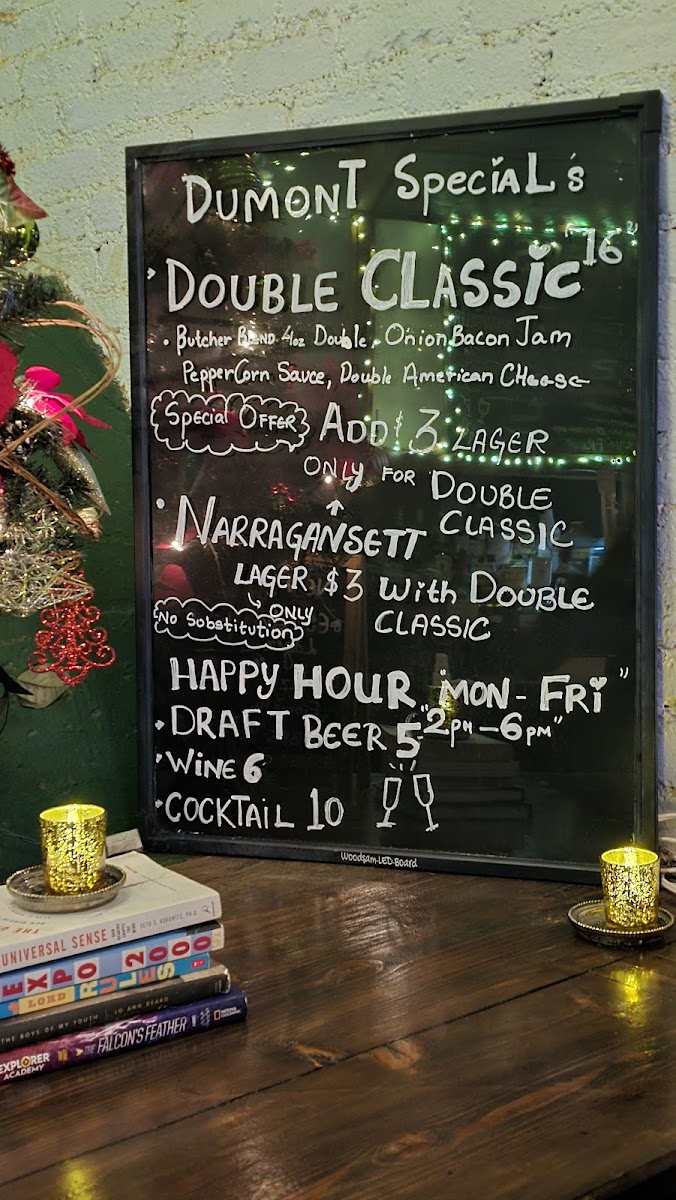 DUMONT SpeciaL's
DOUBLE CLASSiC "16"
• Butcher BLEND 4oz Double, Onion Bacon Jam
PepperCorn Sauce, Double American CHeese
Special OFFER ADD $3 LAGER
ONLY FOR DOUBLE
CLASSIC
• NARRAGANSETT
LAGER $3 With DOUBLE
↳ ONLY CLASSIC
No Substitution
HAPPY HOUR "MON - FRi"
• DRAFT BEER 5 "2PM - 6PM"
• WiNE 6
• COCKTAiL 10
Woodsam-LED-Board
UNIVERSAL SENSE SETH S. HOROWITZ, PH.D.
EXPO 2000
LORD RULES
THE BOYS OF MY YOUTH JO ANN BEARD
EXPLORER ACADEMY THE FALCON'S FEATHER NATIONAL GEOGRAPHIC